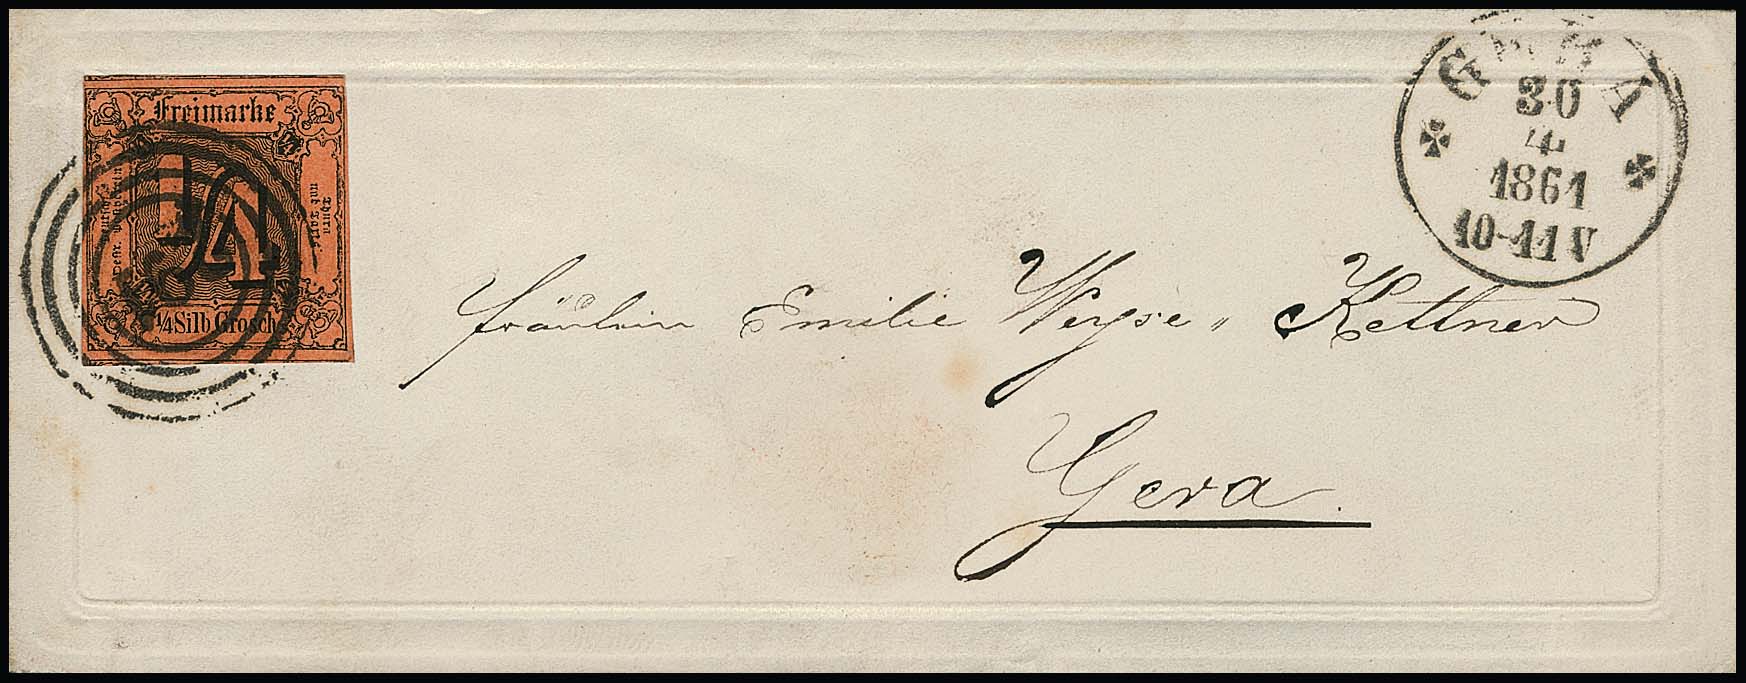 Freimarke
1/4
1/4 Silb. Grosch.
GERA
30
4
1861
10-11 V
Fräulein Emilie Weyse " Kettner
Gera.